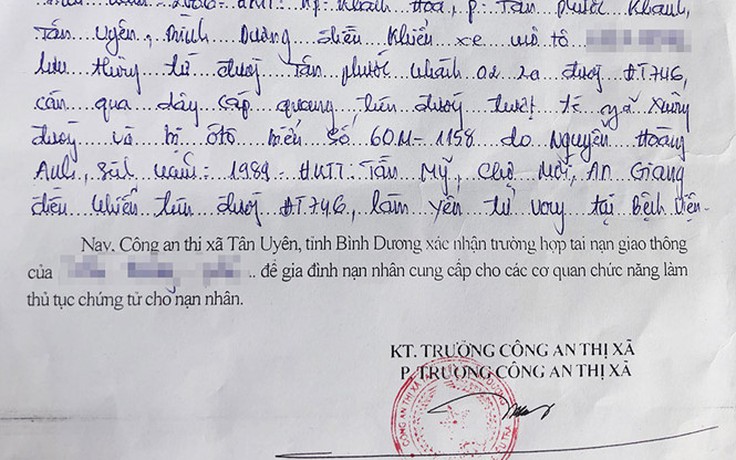 Khánh Hòa, P. Tân Phước Khánh,
Tân Uyên, Bình Dương điều khiển xe mô tô
lưu thông từ đường Tân Phước Khánh 02 ra đường ĐT746,
cán qua dây cáp quang trên đường trượt té ngã xuống
đường và bị ôtô biển số 60M-1158 do Nguyễn Hoàng
Anh, Sinh năm: 1989 - HKTT: Tấn Mỹ, Chợ Mới, An Giang
điều khiển trên đường ĐT746, làm Yến tử vong tại Bệnh viện
Nay. Công an thị xã Tân Uyên, tỉnh Bình Dương xác nhận trường hợp tai nạn giao thông
của .. để gia đình nạn nhân cung cấp cho các cơ quan chức năng làm
thủ tục chứng tử cho nạn nhân.
KT. TRƯỞNG CÔNG AN THỊ XÃ
P. TRƯỞNG CÔNG AN THỊ XÃ